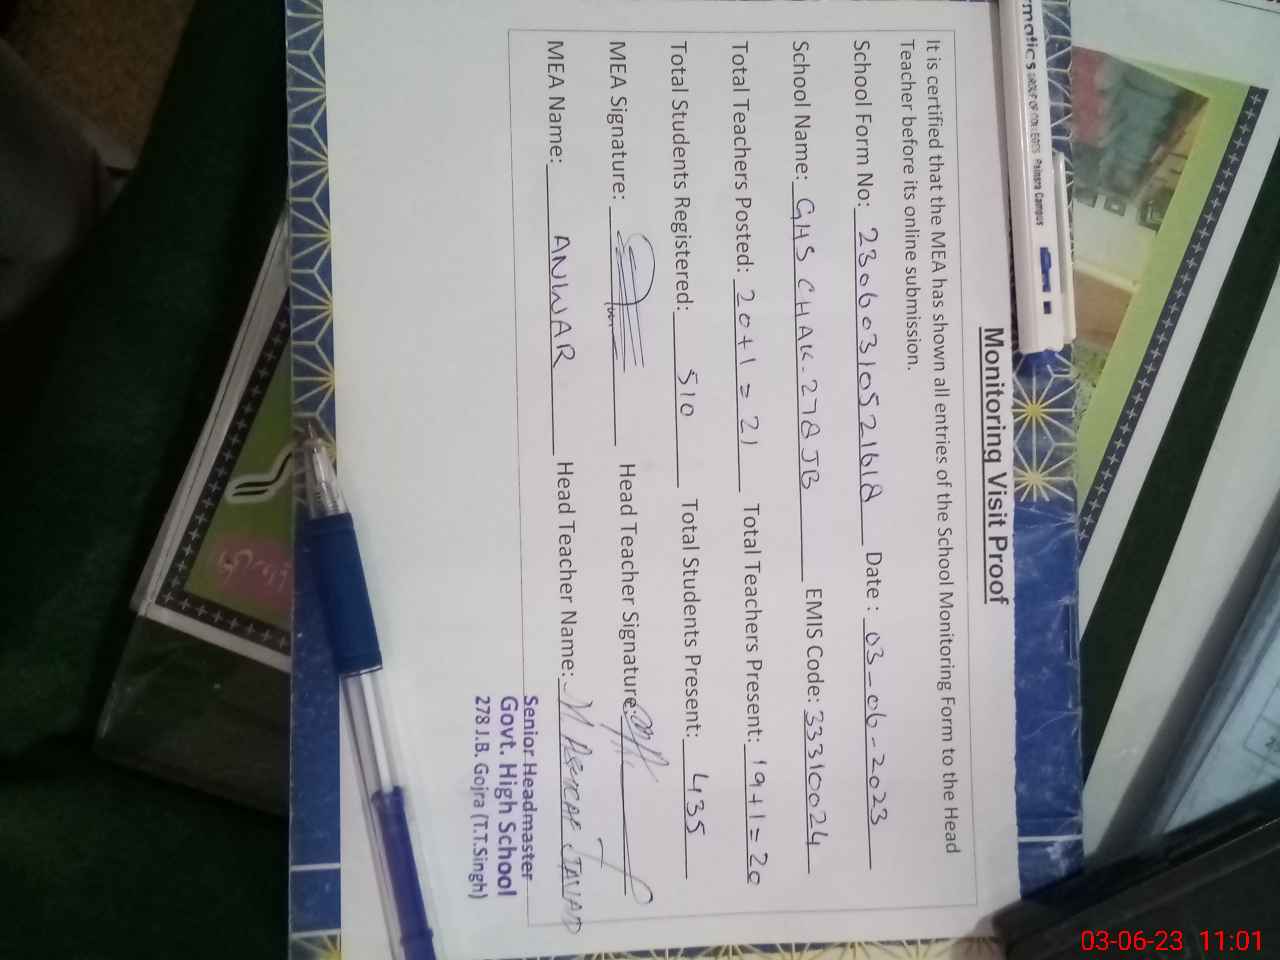 Monitoring Visit Proof
It is certified that the MEA has shown all entries of the School Monitoring Form to the Head
Teacher before its online submission.
School Form No: 23060310521618 Date : 03-06-2023
School Name: GHS CHAK.278JB EMIS Code: 33310024
Total Teachers Posted: 20+1=21 Total Teachers Present: 19+1=20
Total Students Registered: 510 Total Students Present: 435
MEA Signature: Head Teacher Signature:
MEA Name: ANWAR Head Teacher Name: M JAVAID
Senior Headmaster
Govt. High School
278 J.B. Gojra (T.T.Singh)
matics GROUP OF COLLEGES Painsra Campus
03-06-23 11:01